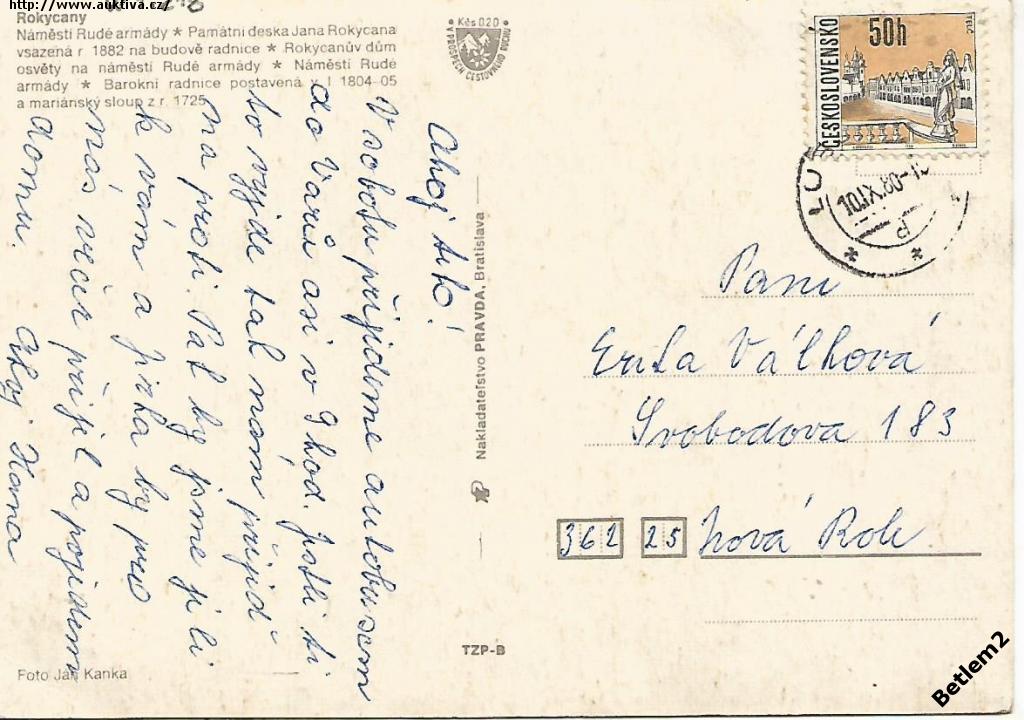 http://www.auktiva.cz/
Rokycany
Náměstí Rudé armády * Pamätní deska Jana Rokycana
vsazená r 1882 na budově radnice * Rokycanův dům
osvěty na náměstí Rudé armády * Náměstí Rudé
armády * Barokní radnice postavená v l 1804-05
a mariánský sloup z r. 1725
Ahoj teto!
V sobotu přijedeme autobusem
do Varů asi v 9 hod. Jestli ti
to vyjde tak nám přijď
na proti. Pak by jsme jeli
k vám a Jirka by pro
nás večer přijel a pojedem
domu. Ahoj Hana
Foto Ján Kanka
Nakladateľstvo PRAVDA, Bratislava
TZP-B
Kčs 0.20
V PROSPĚCH CESTOVNÉHO RUCHU
ČESKOSLOVENSKO
50h
TELČ
10.IX.80-1
Paní
Erika Válková
Svobodova 183
362 25 Nová Role
Betlem2